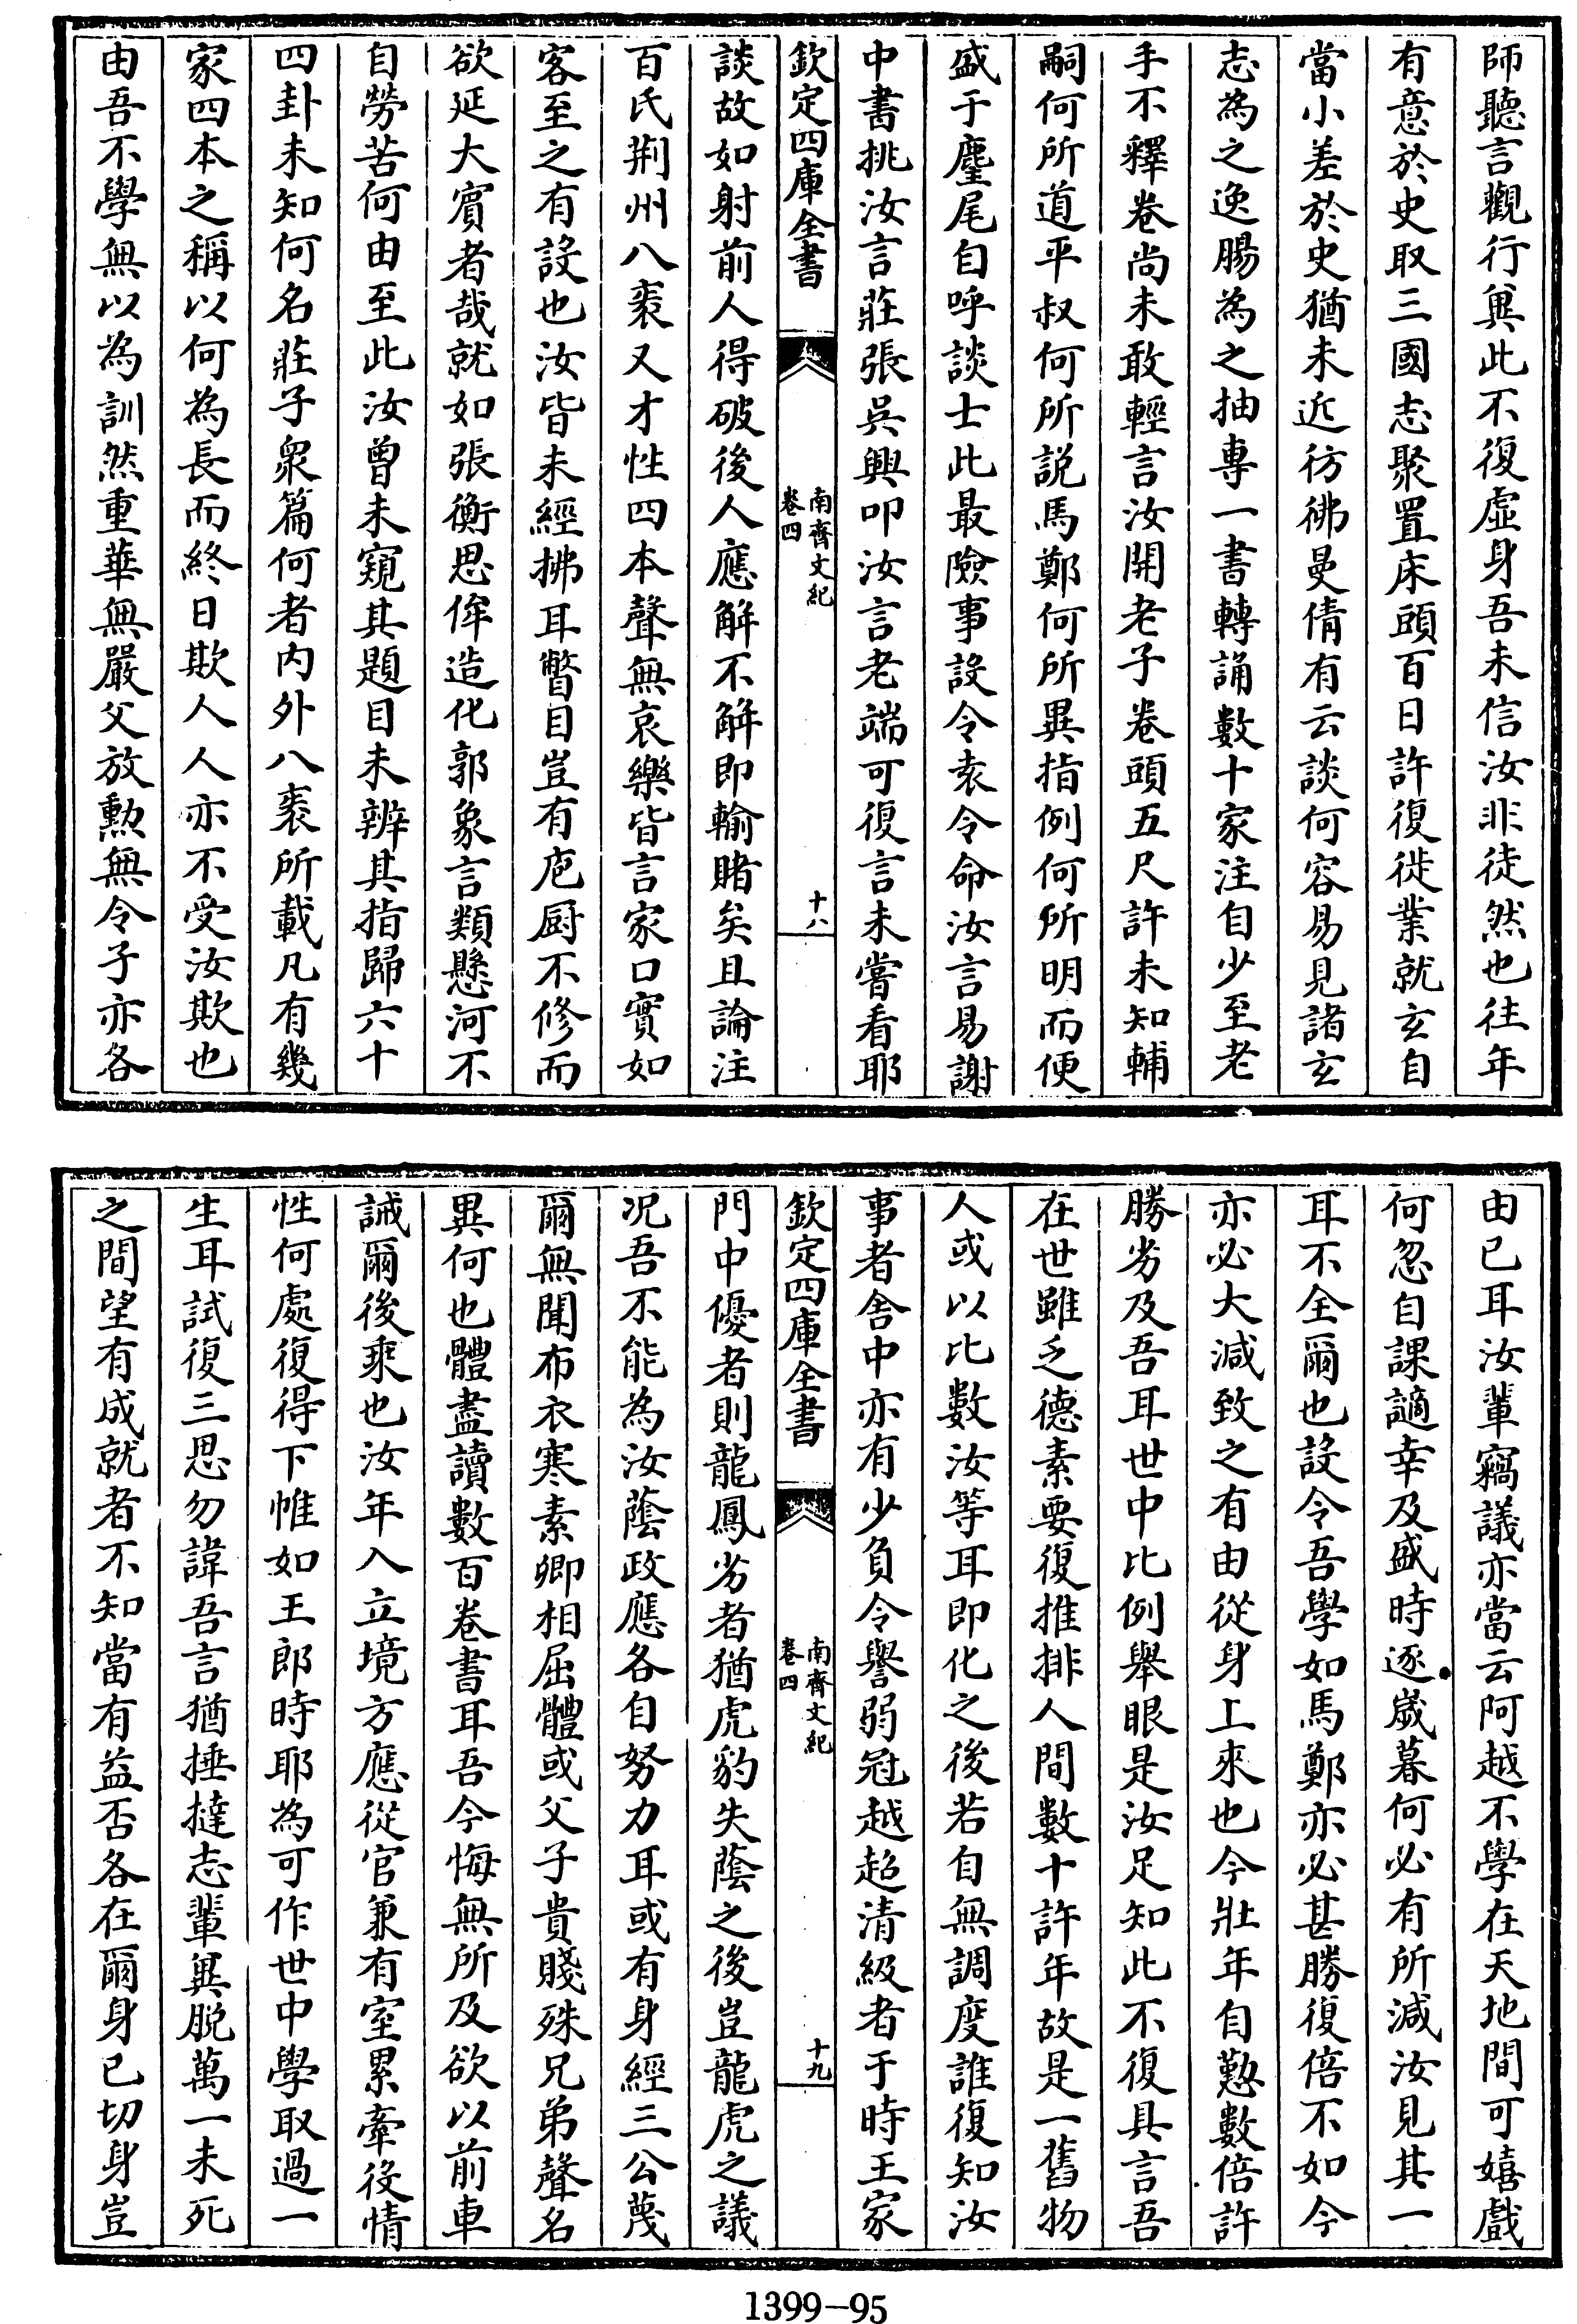 師聽言觀行冀此不復虛身吾未信汝非徒然也往年
有意於史取三國志聚置床頭百日許復徙業就玄自
當小差於史猶未近彷彿曼倩有云談何容易見諸玄
志為之逸腸為之抽専一書轉誦數十家注自少至老
手不釋卷尚未敢輕言汝開老子卷頭五尺許未知輔
嗣何所道平叔何所説馬鄭何所異指例何所明而便
盛于麈尾自呼談士此最險事設令袁令命汝言易謝
中書挑汝言莊張吳興叩汝言老端可復言未嘗看耶
欽定四庫全書
南齊文紀
卷四
十八
談故如射前人得破後人應解不解即輸賭矣且論注
百氏荆州八袠又才性四本聲無哀樂皆言家口實如
客至之有設也汝皆未經拂耳瞥目豈有庖厨不修而
欲延大賓者哉就如張衡思侔造化郭象言類懸河不
自勞苦何由至此汝曾未窺其題目未辨其指歸六十
四卦未知何名莊子衆篇何者内外八袠所載凡有幾
家四本之稱以何為長而終日欺人人亦不受汝欺也
由吾不學無以為訓然重華無嚴父放勲無令子亦各
由已耳汝輩竊議亦當云阿越不學在天地間可嬉戲
何忽自課謫幸及盛時逐歲暮何必有所減汝見其一
耳不全爾也設令吾學如馬鄭亦必甚勝復倍不如今
亦必大減致之有由從身上來也今壯年自懃數倍許
勝劣及吾耳世中比例舉眼是汝足知此不復具言吾
在世雖乏德素要復推排人間數十許年故是一舊物
人或以比數汝等耳即化之後若自無調度誰復知汝
事者舍中亦有少負令譽弱冠越超清級者于時王家
欽定四庫全書
南齊文紀
卷四
十九
門中優者則龍鳳劣者猶虎豹失蔭之後豈龍虎之議
况吾不能為汝蔭政應各自努力耳或有身經三公蔑
爾無聞布衣寒素卿相屈體或父子貴賤殊兄弟聲名
異何也體盡讀數百卷書耳吾今悔無所及欲以前車
誡爾後乘也汝年入立境方應從官兼有室累牽役情
性何處復得下帷如王郎時耶為可作世中學取過一
生耳試復三思勿諱吾言猶捶撻志輩冀脱萬一未死
之間望有成就者不知當有益否各在爾身已切身豈
1399-95